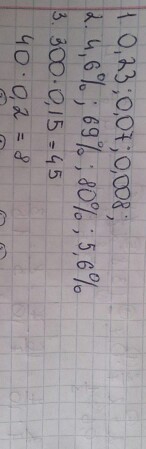 1 0,23; 0,07; 0,008;
2. 4,6%; 69%; 80%; 5,6%
3. 300·0,15=45
40·0,2=8